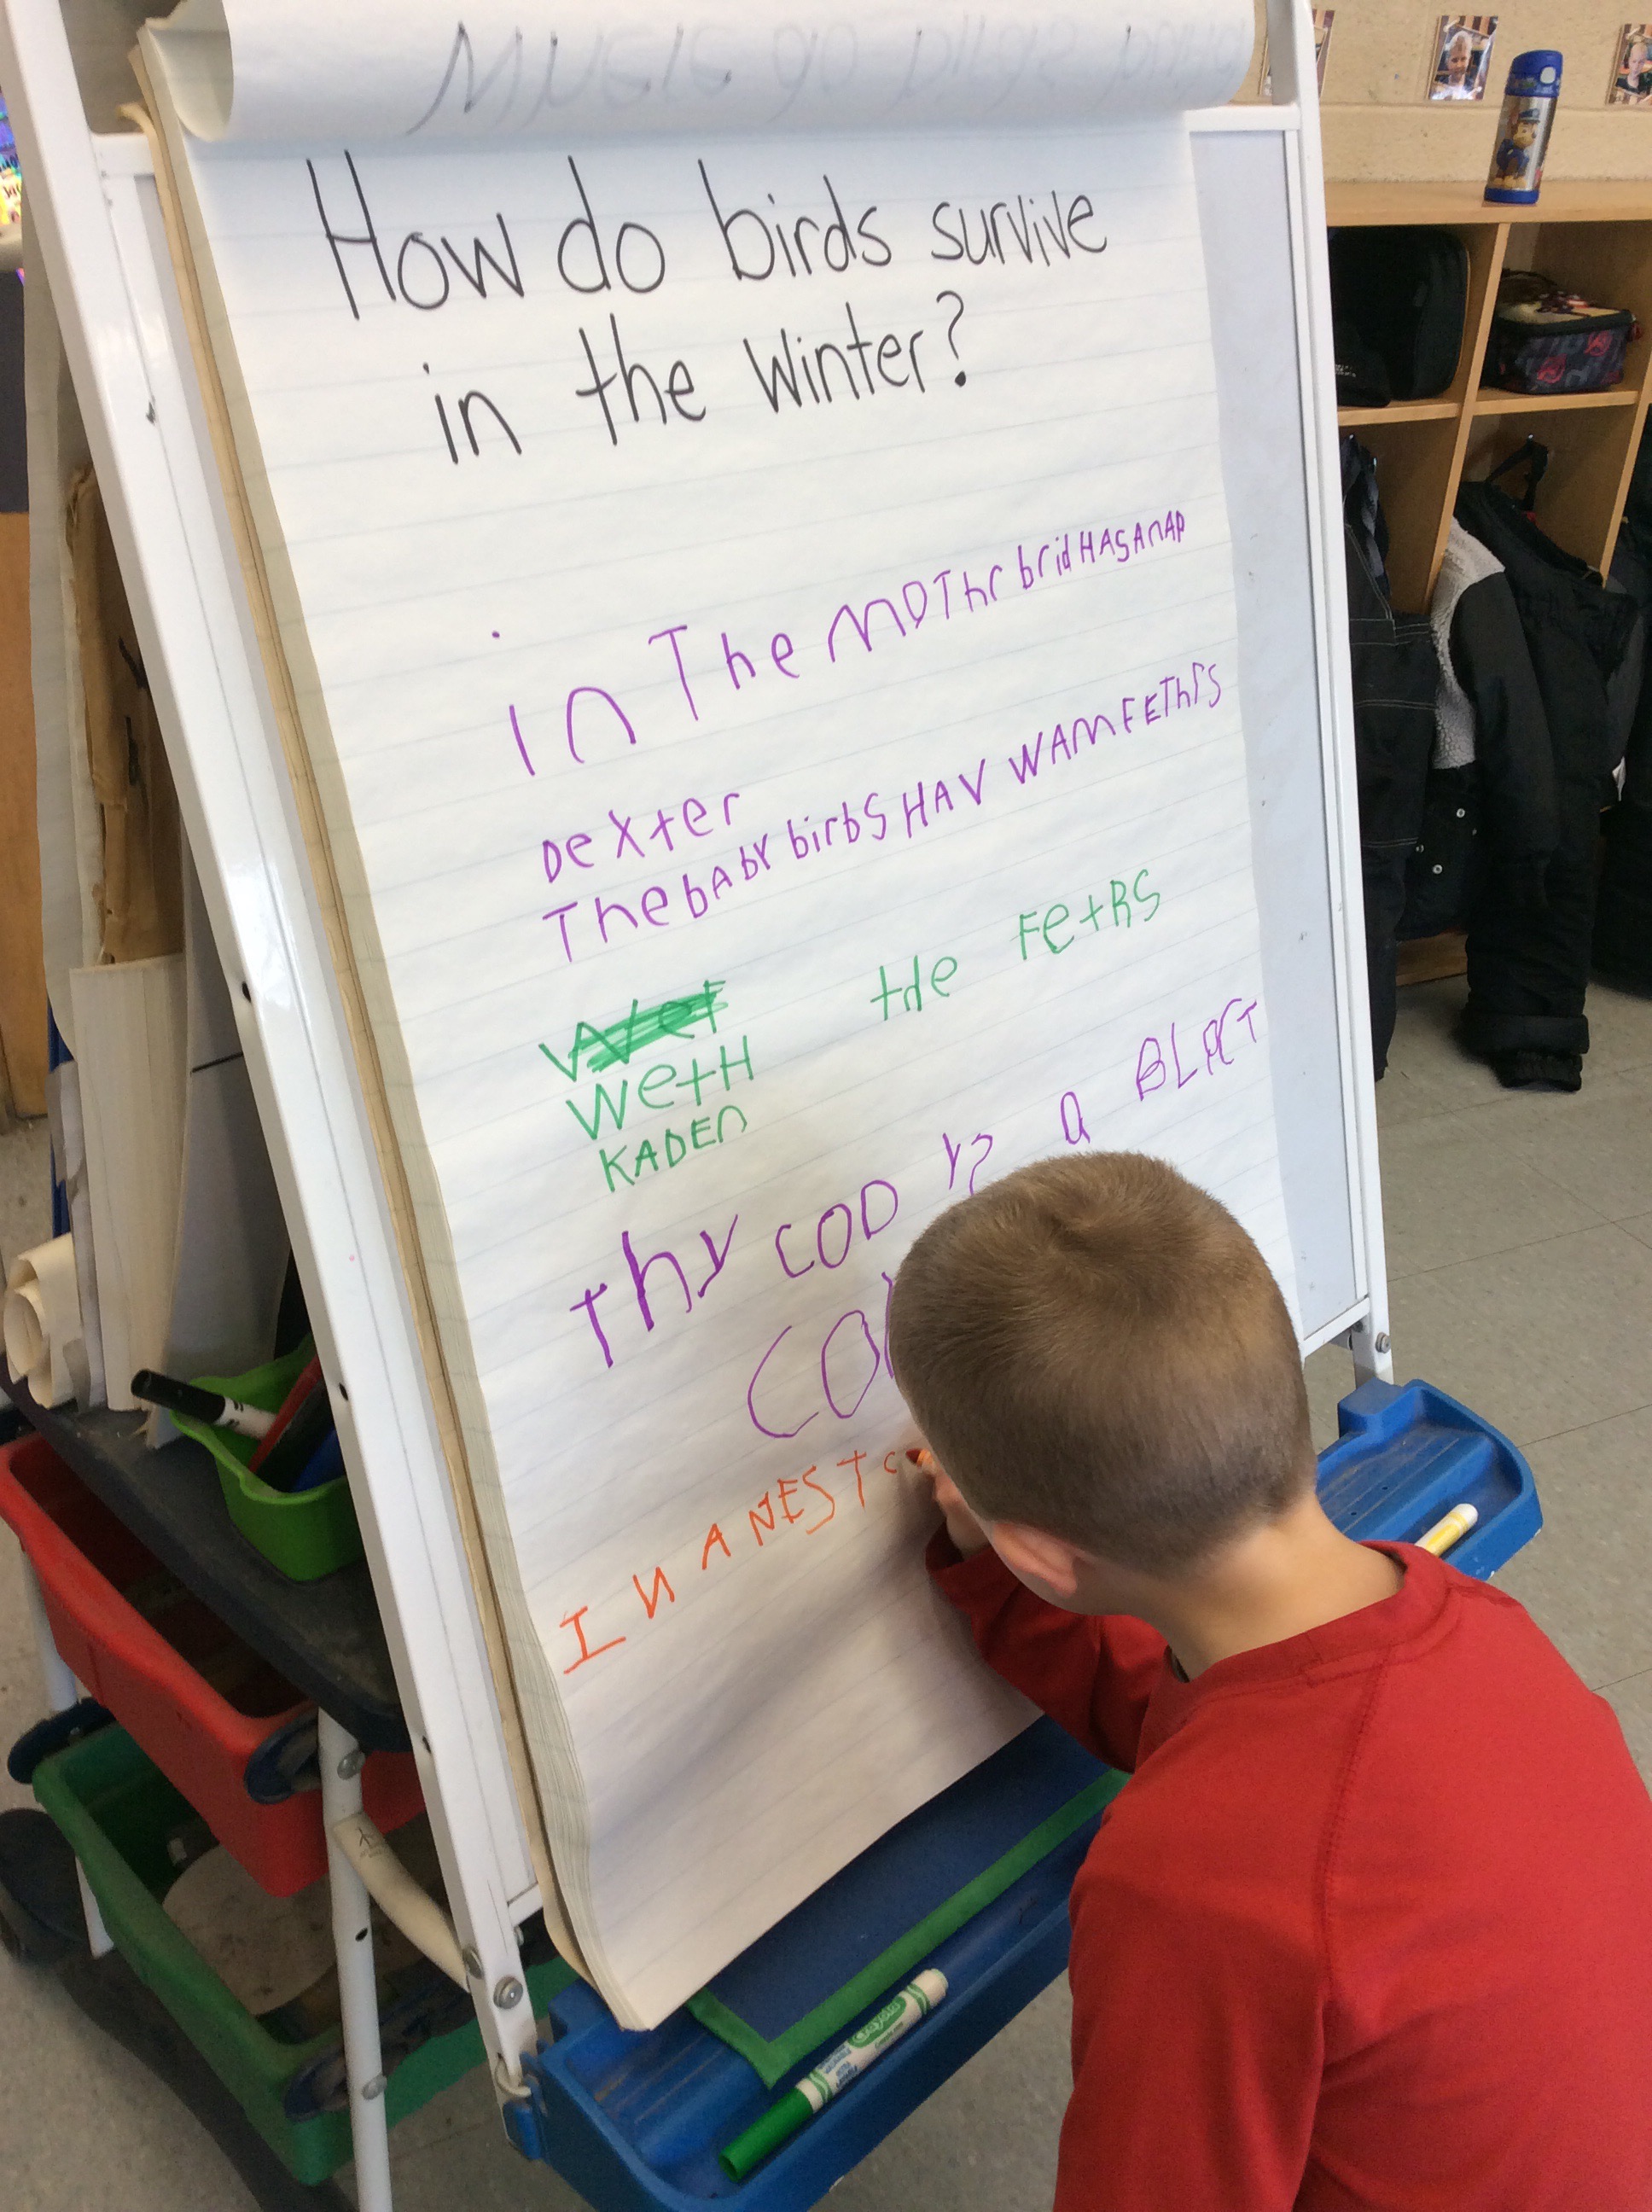 How do birds survive
in the winter?
in The MOThr brid HASANAP
Dexter
The bAbY birbS HAV WAM FEThrS
WetH the FetRS
KADEn
Thy COD a
I N A NEST
Crayola